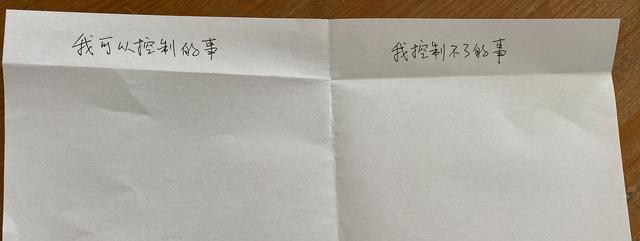 我可以控制的事
我控制不了的事